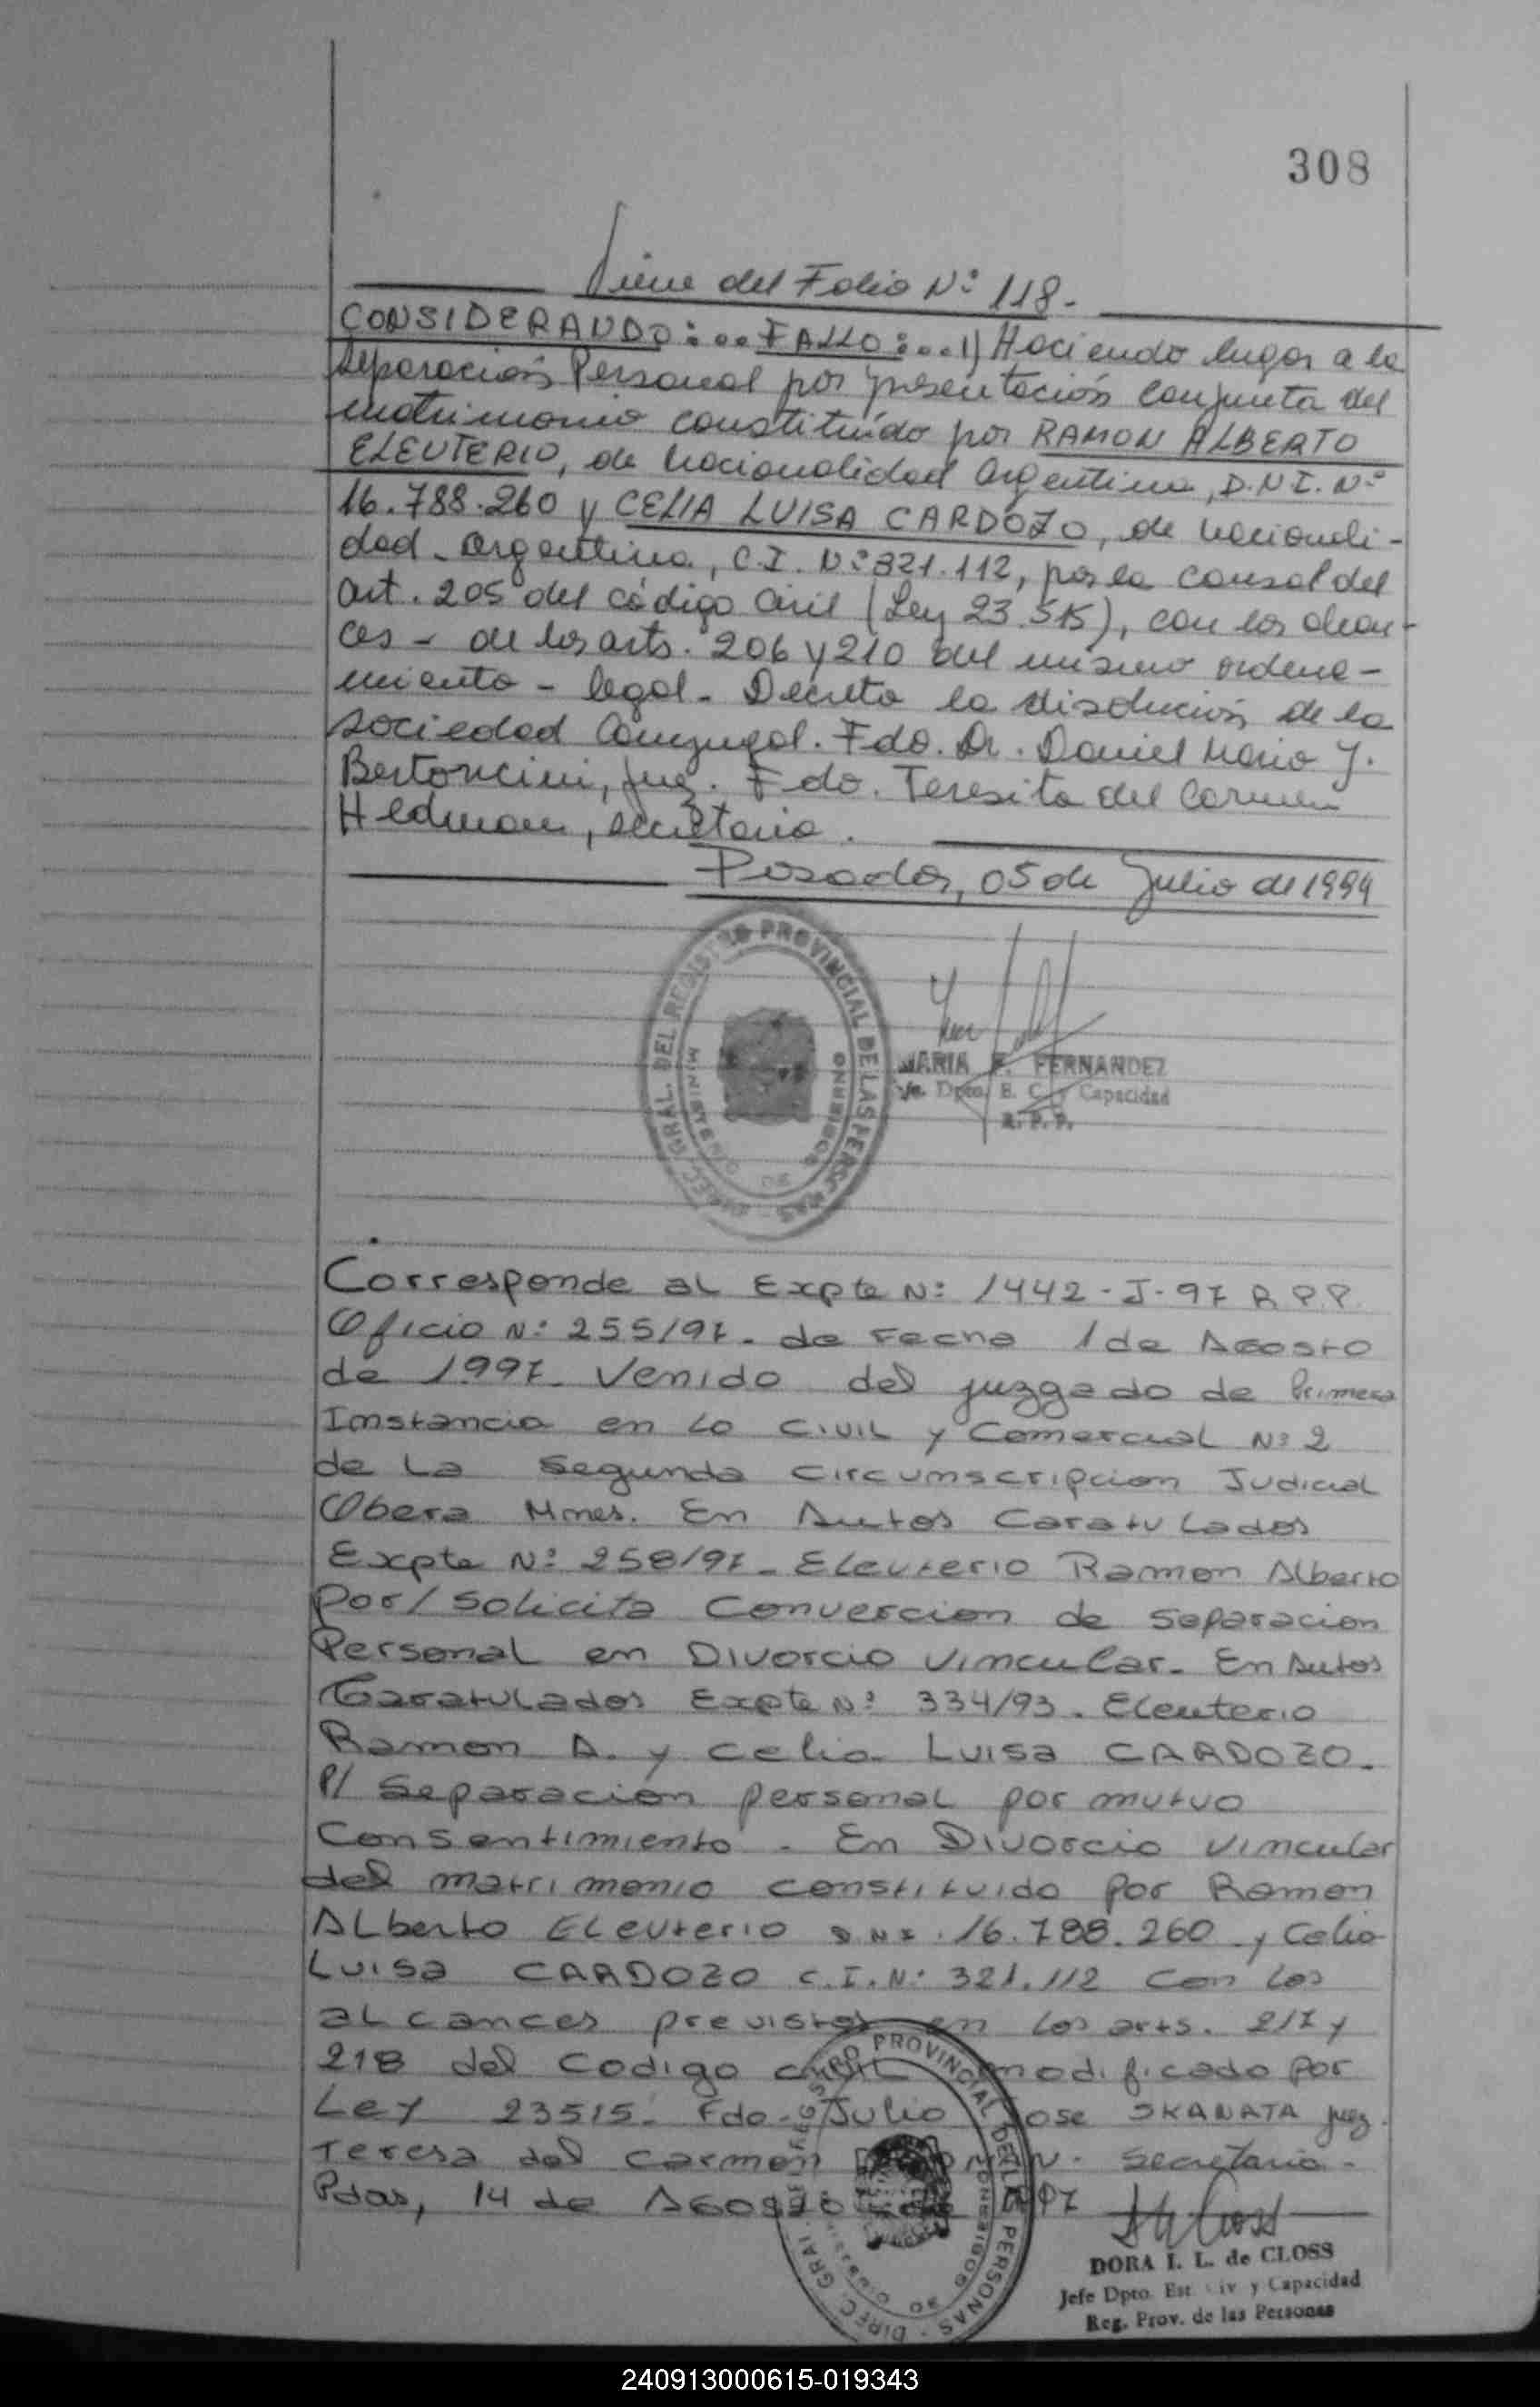 308
Viene del Folio Nº 118.
CONSIDERANDO:...FALLO:...1) Haciendo lugar a la
Separación Personal por presentación conjunta del
matrimonio constituído por RAMON ALBERTO
ELEUTERIO, de nacionalidad Argentina, D.N.I. Nº
16.788.260 y CELIA LUISA CARDOZO, de nacionali-
dad - argentina, C.I. Nº 321.112, por la causal del
art. 205 del código civil (Ley 23.515), con los alcan-
ces - de los arts. 206 y 210 del mismo ordena-
miento - legal - Decreta la disolución de la
sociedad Conyugal. Fdo. Dr. Daniel Mario J.
Bertoncini, juez. Fdo. Teresita del Carmen
Hedman, secretaria.
Posadas, 05 de Julio de 1994
DIREC. GRAL. DEL REGISTRO PROVINCIAL DE LAS PERSONAS
MINISTERIO DE GOBIERNO
MARIA F. FERNANDEZ
Dpto. E. C. y Capacidad
R. P. P.
Corresponde al Expte Nº 1442-J-97 R.P.P.
Oficio Nº 255/97 - de Fecha 1 de Agosto
de 1997 - Venido del juzgado de Primera
Instancia en lo Civil y Comercial Nº 2
de La Segunda Circumscripcion Judicial
Obera Mnes. En Autos Caratulados
Expte Nº 258/97 - Eleuterio Ramon Alberto
Por/ Solicita Convercion de Separacion
Personal en Divorcio Vincular - En Autos
Caratulados Expte Nº 334/93 - Eleuterio
Ramon A. y Celia Luisa CARDOZO -
P/ Separación personal por mutuo
Consentimiento - En Divorcio Vincular
del matrimonio constituido por Ramon
Alberto Eleuterio D.N.I. 16.788.260 y Celia
Luisa CARDOZO C.I. Nº 321.112 Con los
alcances previstos en los arts. 217 y
218 del Codigo civil modificado por
Ley 23515. Fdo. Julio Jose SKANATA juez.
Teresa del Carmen Secretaria -
Pdas, 14 de Agosto
DIREC. GRAL. DEL REGISTRO PROVINCIAL DE LAS PERSONAS
DE GOBIERNO
DORA I. L. de CLOSS
Jefe Dpto. Est. Civ. y Capacidad
Reg. Prov. de las Personas
240913000615-019343